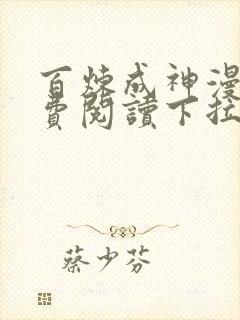 百炼成神漫
费阅读下拉
蔡少芬